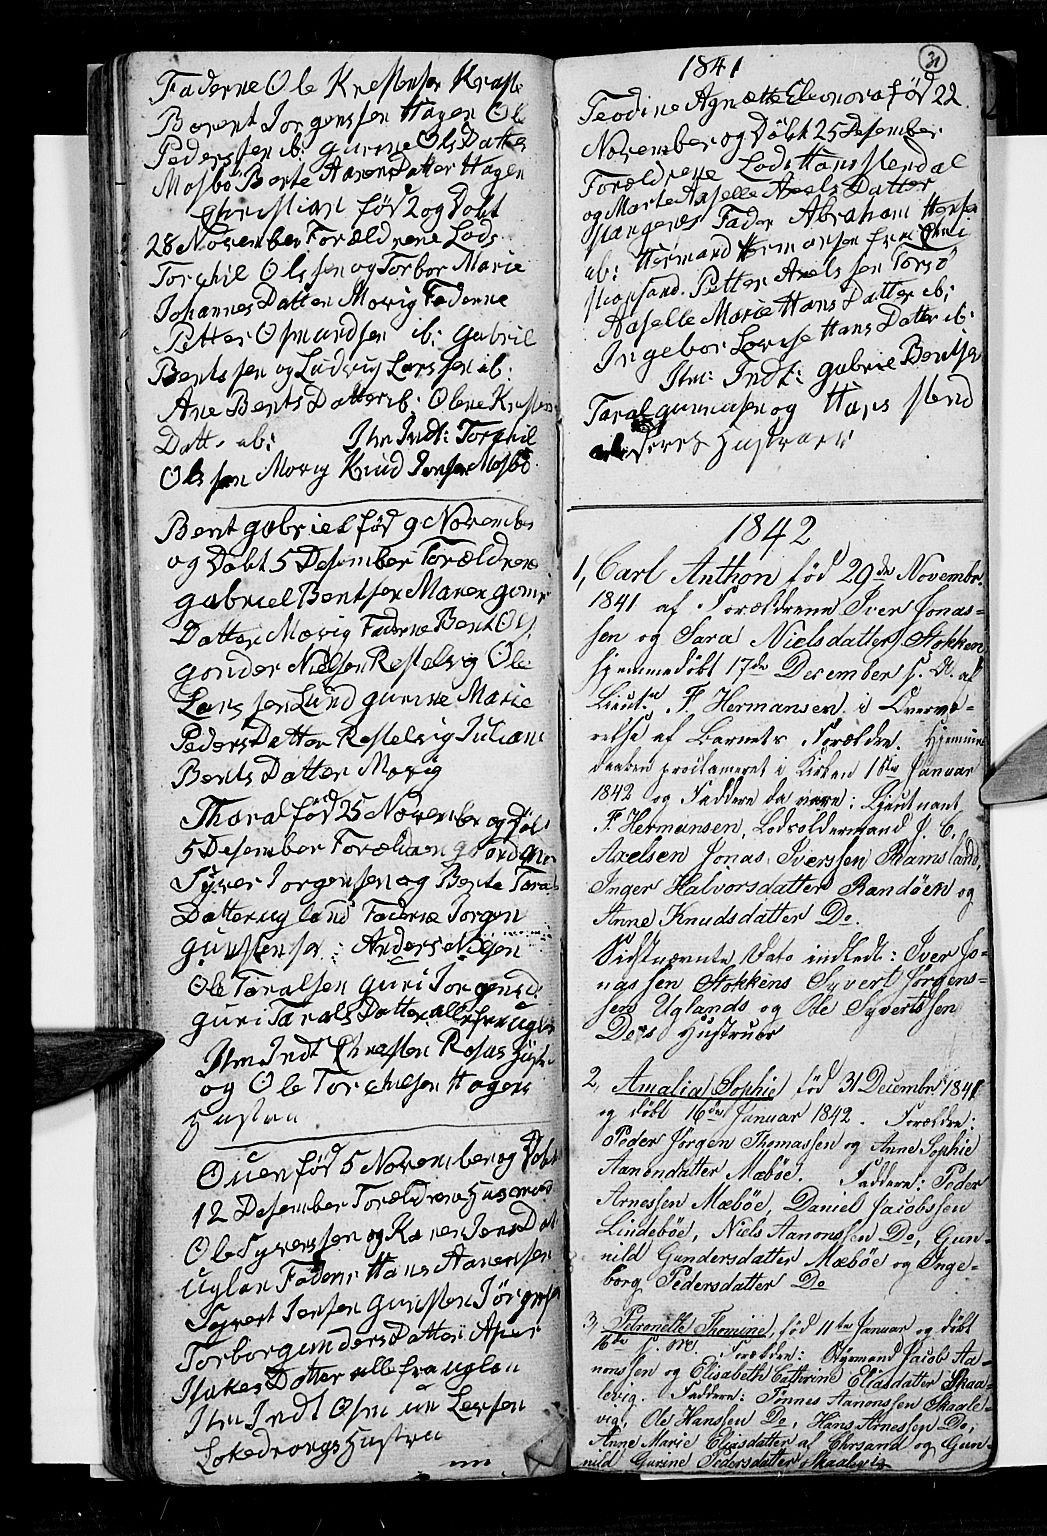 Faderne Ole Krestensen Kraage
Berent Jorgenssen Hagen Ole
Pederssen ib: gurine Ols Datter
Mosbö Berte Aanens Datter Hagen
Christian föd 2 og Döbt
28 November Forældrene Lods
Torchil Olssen og Torbor Marie
Johannes Datter Movig Faderne
Petter Osmundsen ib: gabriel
Bentssen og Ludvig Larssen ib:
Ane Bents Datter ib: Olene Kresten
Datt. ib: Itm Indt: Torchil
Olssen Movig Knud Jensen Mosbö
Bent gabriel föd 9 November
og Döbt 5 Desember Forældrene
gabriel Bentsen Maren gonner
Datter Movig Faderne Bent Ols
gonder Nielsen Restelvig Ole
Larssen Lund gurine Marie
Peders Datter Restelvig Juliane
Bents Datter Movig
Tharal föd 25 November og Döbt
5 Desember Forældren
Syver Jorgensen og Bente Taral
Datter ugland Faderne Jorgen
gunstensen: Anders Nilsen
Ole Taralsen guri Jorgensd
guri Tarals Datter alle fra uglan
Itm Indt Chresten Rosas Hustr
og Ole Torchelsen Hagens
Hustru
Ouen föd 5 November og Döbt
12 Desember Forældrene Husmand
Ole Syverssen og Karen Jens Dat
uglan Faderne Hans Aanensen
Syvert Jensen gunsten Jörgensen
Torbor gunders Datter
Isakes Datter alle fra uglan
Itm Indt Osmun Larsen
Hustru
31
1841
Teodine Agnætte Eleonora föd 22
November og Döbt 25 Desember
Forældrene Lods Hans stendal
og Marte Aaselle Axels Datter
stangenes Fader Abraham Hensen
ib: Hermand Hermansen fra
skopsand. Petter Axelssen Torsö
Aaselle Marie Hans Datter ib:
Ingebor Lovise Hans Datter ib:
Itm: Indt: gabriel Bentsen
Taral gunnasen og Hans stend
deres Hustruer
1842
1, Carl Anthon föd 29de Novembr.
1841 af Forældrene Iver Jonas-
sen og Sara Nielsdatter Stokken,
hjemmedöbt 17de December s. A. af
Lieutn F. Hermansen i Overvæ-
relse af Barnets Forældre. Hjemme
daaben proclameret i Kirken 16de Januar
1842 og Faddere da vare: Lieutnant
F. Hermansen, Lodsoldermand J. C.
Axelsen Jonas Iverssen Rhamsland,
Inger Halvorsdatter Randöen og
Anne Knudsdatter Do.
Sidstnævnte Dato indledt: Iver Jo-
nassen Stokkens Syvert Jörgens-
sen Uglands og Ole Syvertssen
Dos Hustruer
2, Amalia Sophie föd 31 Decembr. 1841
og döbt 16de Januar 1842. Forældre:
Peder Jörgen Thomassen og Anne Sophie
Aanondatter Mæböe. Faddere: Peder
Arnessen Mæböe, Daniel Jacobssen
Lindeböe, Niels Aanonssen Do, Gun-
nild Gundersdatter Mæböe og Inge-
borg Pedersdatter Do
3, Petronelle Thomine, föd 11te Januar og döbt
16de s. M. Forældre: Styrmand Jacob Aa-
nonssen og Elisabeth Cathrine Eliasdatter Skaa-
levig. Faddere: Tönnes Aanonssen Skaale-
vig, Ole Hanssen Do, Hans Arnessen Do,
Anne Marie Eliasdatter af Chrsand og Gun-
nild Gurine Pedersdatter Skaalevig